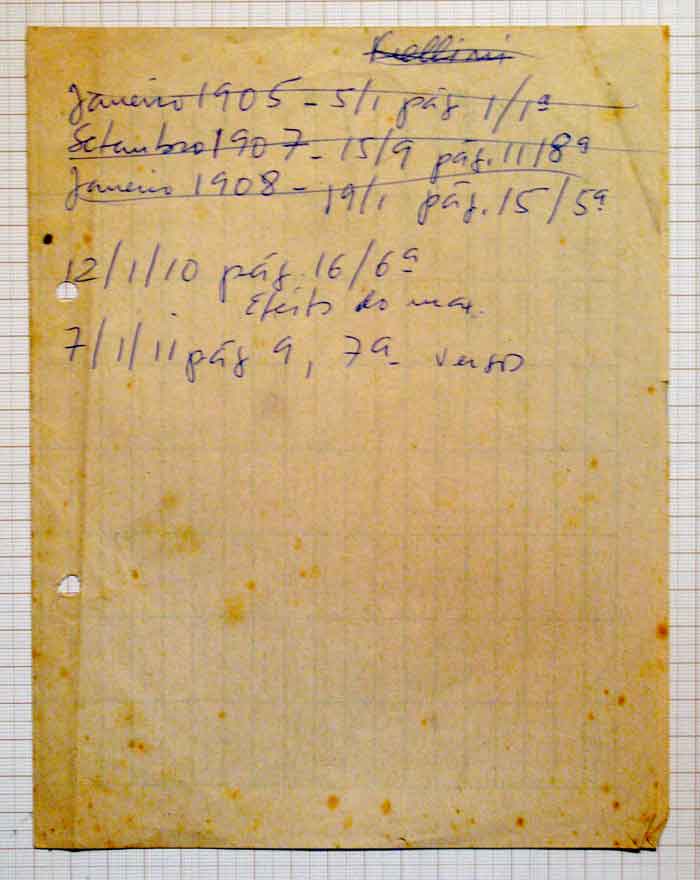 Janeiro 1905 - 5/1 pág 1/1ª
Setembro 1907 - 15/9 pág. 11/8ª
Janeiro 1908 - 19/1 pág. 15/5ª
12/1/10 pág. 16/6ª
Efeito do mar.
7/1/11 pág 9, 7ª- versos